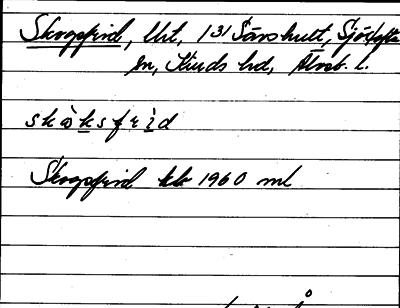 Skogsfrid, lht, 131 Sävshult, Sjötofta
sn, Kinds hd, Älvsb. l.
skòksfrìd
Skogsfrid kb 1960 ml